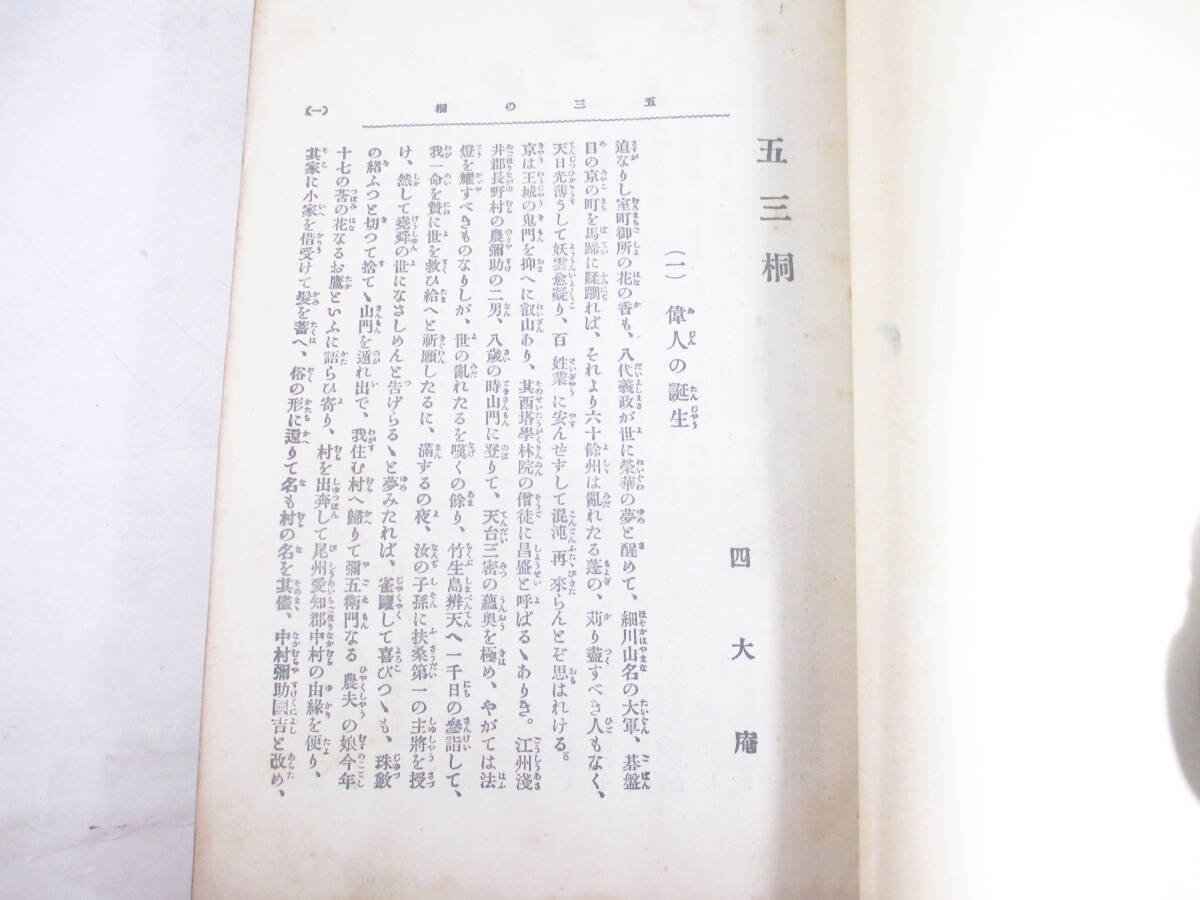 五三桐
四大庵
(一) 偉人の誕生
五三の桐
(一)
遉なりし室町御所の花の香も、八代義政が世に榮華の夢と醒めて、細川山名の大軍、碁盤
目の京の町を馬蹄に蹂躙れば、それより六十餘州は亂れたる蓬の、苅り盡すべき人もなく、
天日光薄うして妖雲愈凝り、百姓業に安んせずして混沌再來らんとぞ思はれける。
京は王城の鬼門を抑へに叡山あり、其西塔學林院の僧徒に昌盛と呼ばるゝありき。江州淺
井郡長野村の農彌助の二男、八歳の時山門に登りて、天台三密の蘊奥を極め、やがては法
燈を耀すべきものなりしが、世の亂れたるを嘆くの餘り、竹生島辨天へ一千日の參詣して、
我一命を贄に世を救ひ給へと祈願したるに、滿ずるの夜、汝の子孫に扶桑第一の主將を授
け、然して堯舜の世になさしめんと告げらるゝと夢みたれば、雀躍して喜びつゝも、珠數
の緒ふつと切つて捨てゝ山門を遁れ出で、我住む村へ歸りて彌五衛門なる農夫の娘今年
十七の莟の花なるお鷹といふに語らひ寄り、村を出奔して尾州愛知郡中村の由緣を便り、
其家に小家を借受けて髮を蓄へ、俗の形に還りて名も村の名を其儘、中村彌助國吉と改め、